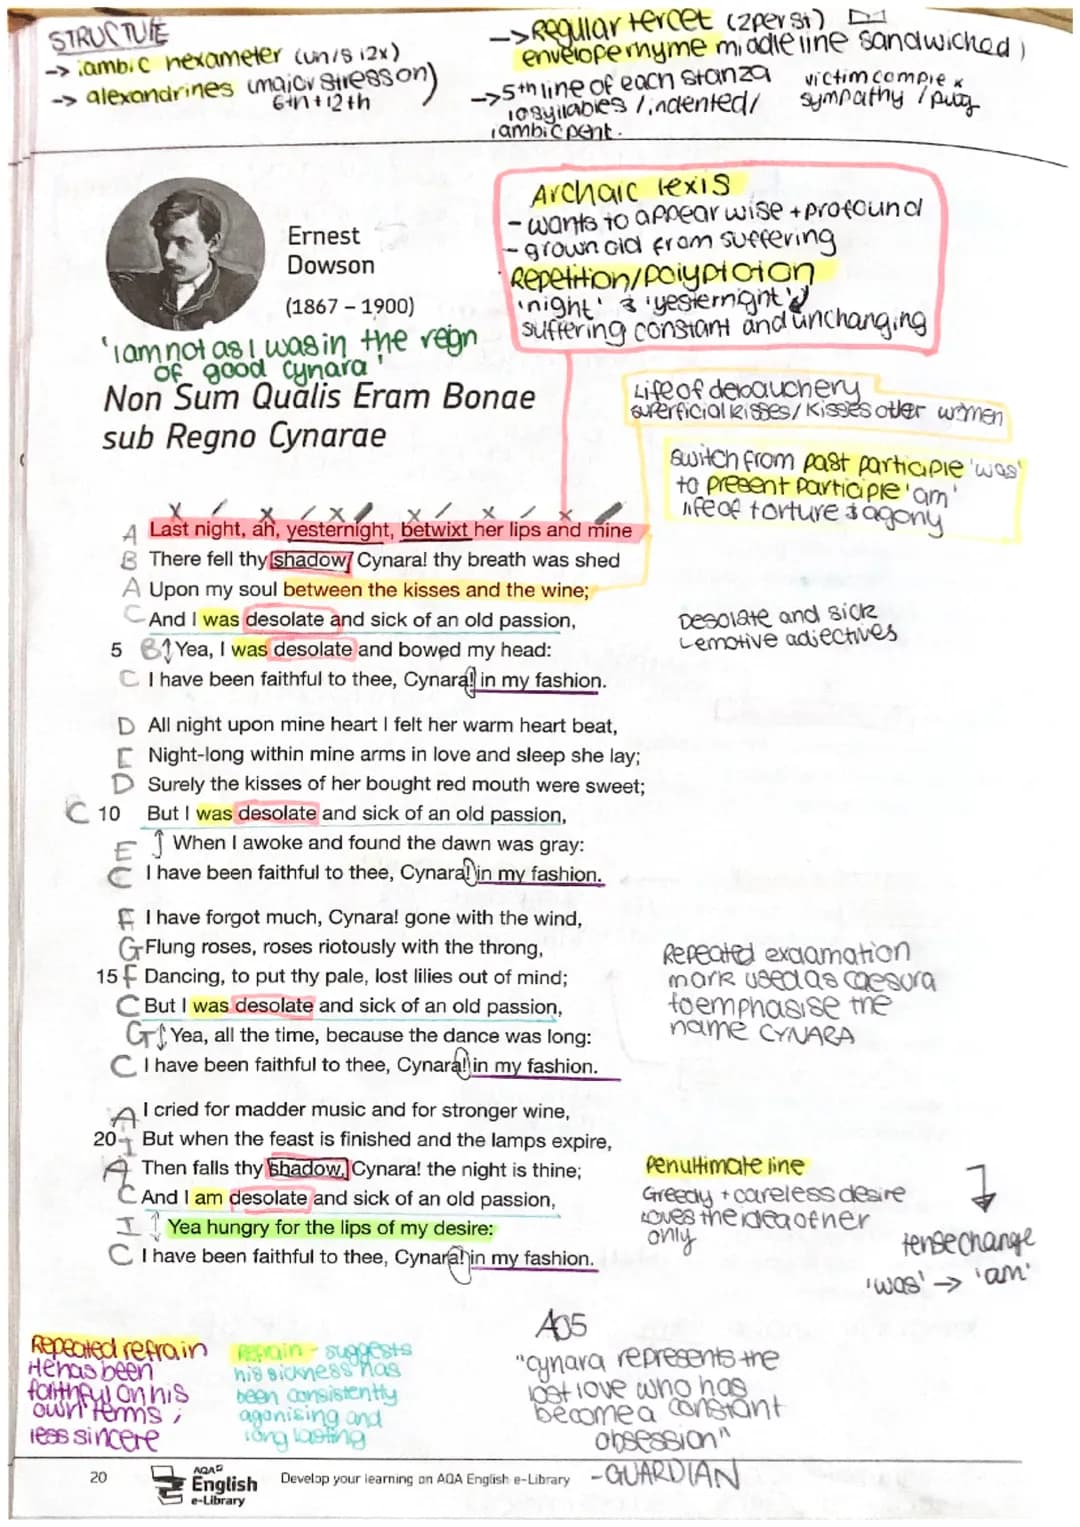 STRUCTURE
-> iambic hexameter (un/s 12x)
-> alexandrines (major stress on)
6th + 12th
-> Regular tercet (2 per st)
envelope rhyme middle line sandwiched)
-> 5th line of each stanza
10 syllables / indented /
iambic pent.
victim complex
sympathy / pity
Archaic lexis
- wants to appear wise + profound
- grown old from suffering
Repetition/polyptoton
'night' & 'yesternight'
suffering constant and unchanging
Ernest
Dowson
(1867 – 1900)
'i am not as I was in the reign
of good cynara'
Non Sum Qualis Eram Bonae
sub Regno Cynarae
Life of debauchery
superficial kisses/ kisses other women
switch from past participle 'was'
to present participle 'am'
life of torture & agony
A Last night, ah, yesternight, betwixt her lips and mine
B There fell thy shadow, Cynara! thy breath was shed
A Upon my soul between the kisses and the wine;
C And I was desolate and sick of an old passion,
5 B↑ Yea, I was desolate and bowed my head:
C I have been faithful to thee, Cynara! in my fashion.
Desolate and sick
emotive adjectives
D All night upon mine heart I felt her warm heart beat,
E Night-long within mine arms in love and sleep she lay;
D Surely the kisses of her bought red mouth were sweet;
C 10 But I was desolate and sick of an old passion,
E ↑ When I awoke and found the dawn was gray:
C I have been faithful to thee, Cynara! in my fashion.
F I have forgot much, Cynara! gone with the wind,
G Flung roses, roses riotously with the throng,
15 F Dancing, to put thy pale, lost lilies out of mind;
C But I was desolate and sick of an old passion,
G↑ Yea, all the time, because the dance was long:
C I have been faithful to thee, Cynara! in my fashion.
Repeated exclamation
mark used as caesura
to emphasise the
name CYNARA
A I cried for madder music and for stronger wine,
20 I But when the feast is finished and the lamps expire,
A Then falls thy shadow, Cynara! the night is thine;
C And I am desolate and sick of an old passion,
I ↑ Yea hungry for the lips of my desire:
C I have been faithful to thee, Cynara! in my fashion.
Penultimate line
Greedy + careless desire
Loves the idea of her
only
tense change
'was' -> 'am'
Repeated refrain
He has been
faithful on his
own terms;
less sincere
Refrain - suggests
his sickness has
been consistently
agonising and
long lasting
AO5
"cynara represents the
lost love who has
become a constant
obsession"
-GUARDIAN
20
AQA
English
e-Library
Develop your learning on AQA English e-Library